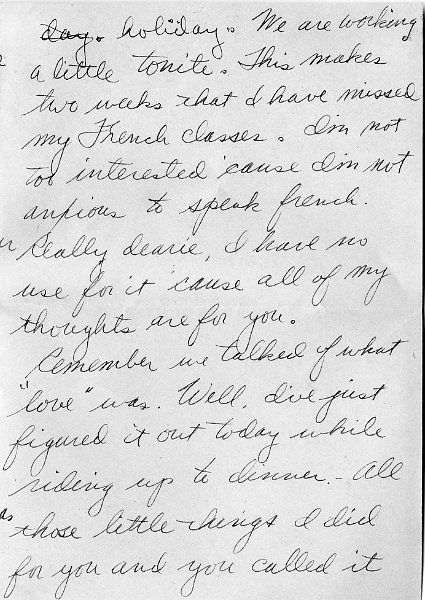 day. holiday. We are working
a little tonite. This makes
two weeks that I have missed
my French classes. I'm not
too interested 'cause I'm not
anxious to speak french.
Really dearie, I have no
use for it 'cause all of my
thoughts are for you.
Remember we talked of what
"love" was. Well, I've just
figured it out today while
riding up to dinner. - All
those little things I did
as
for you and you called it